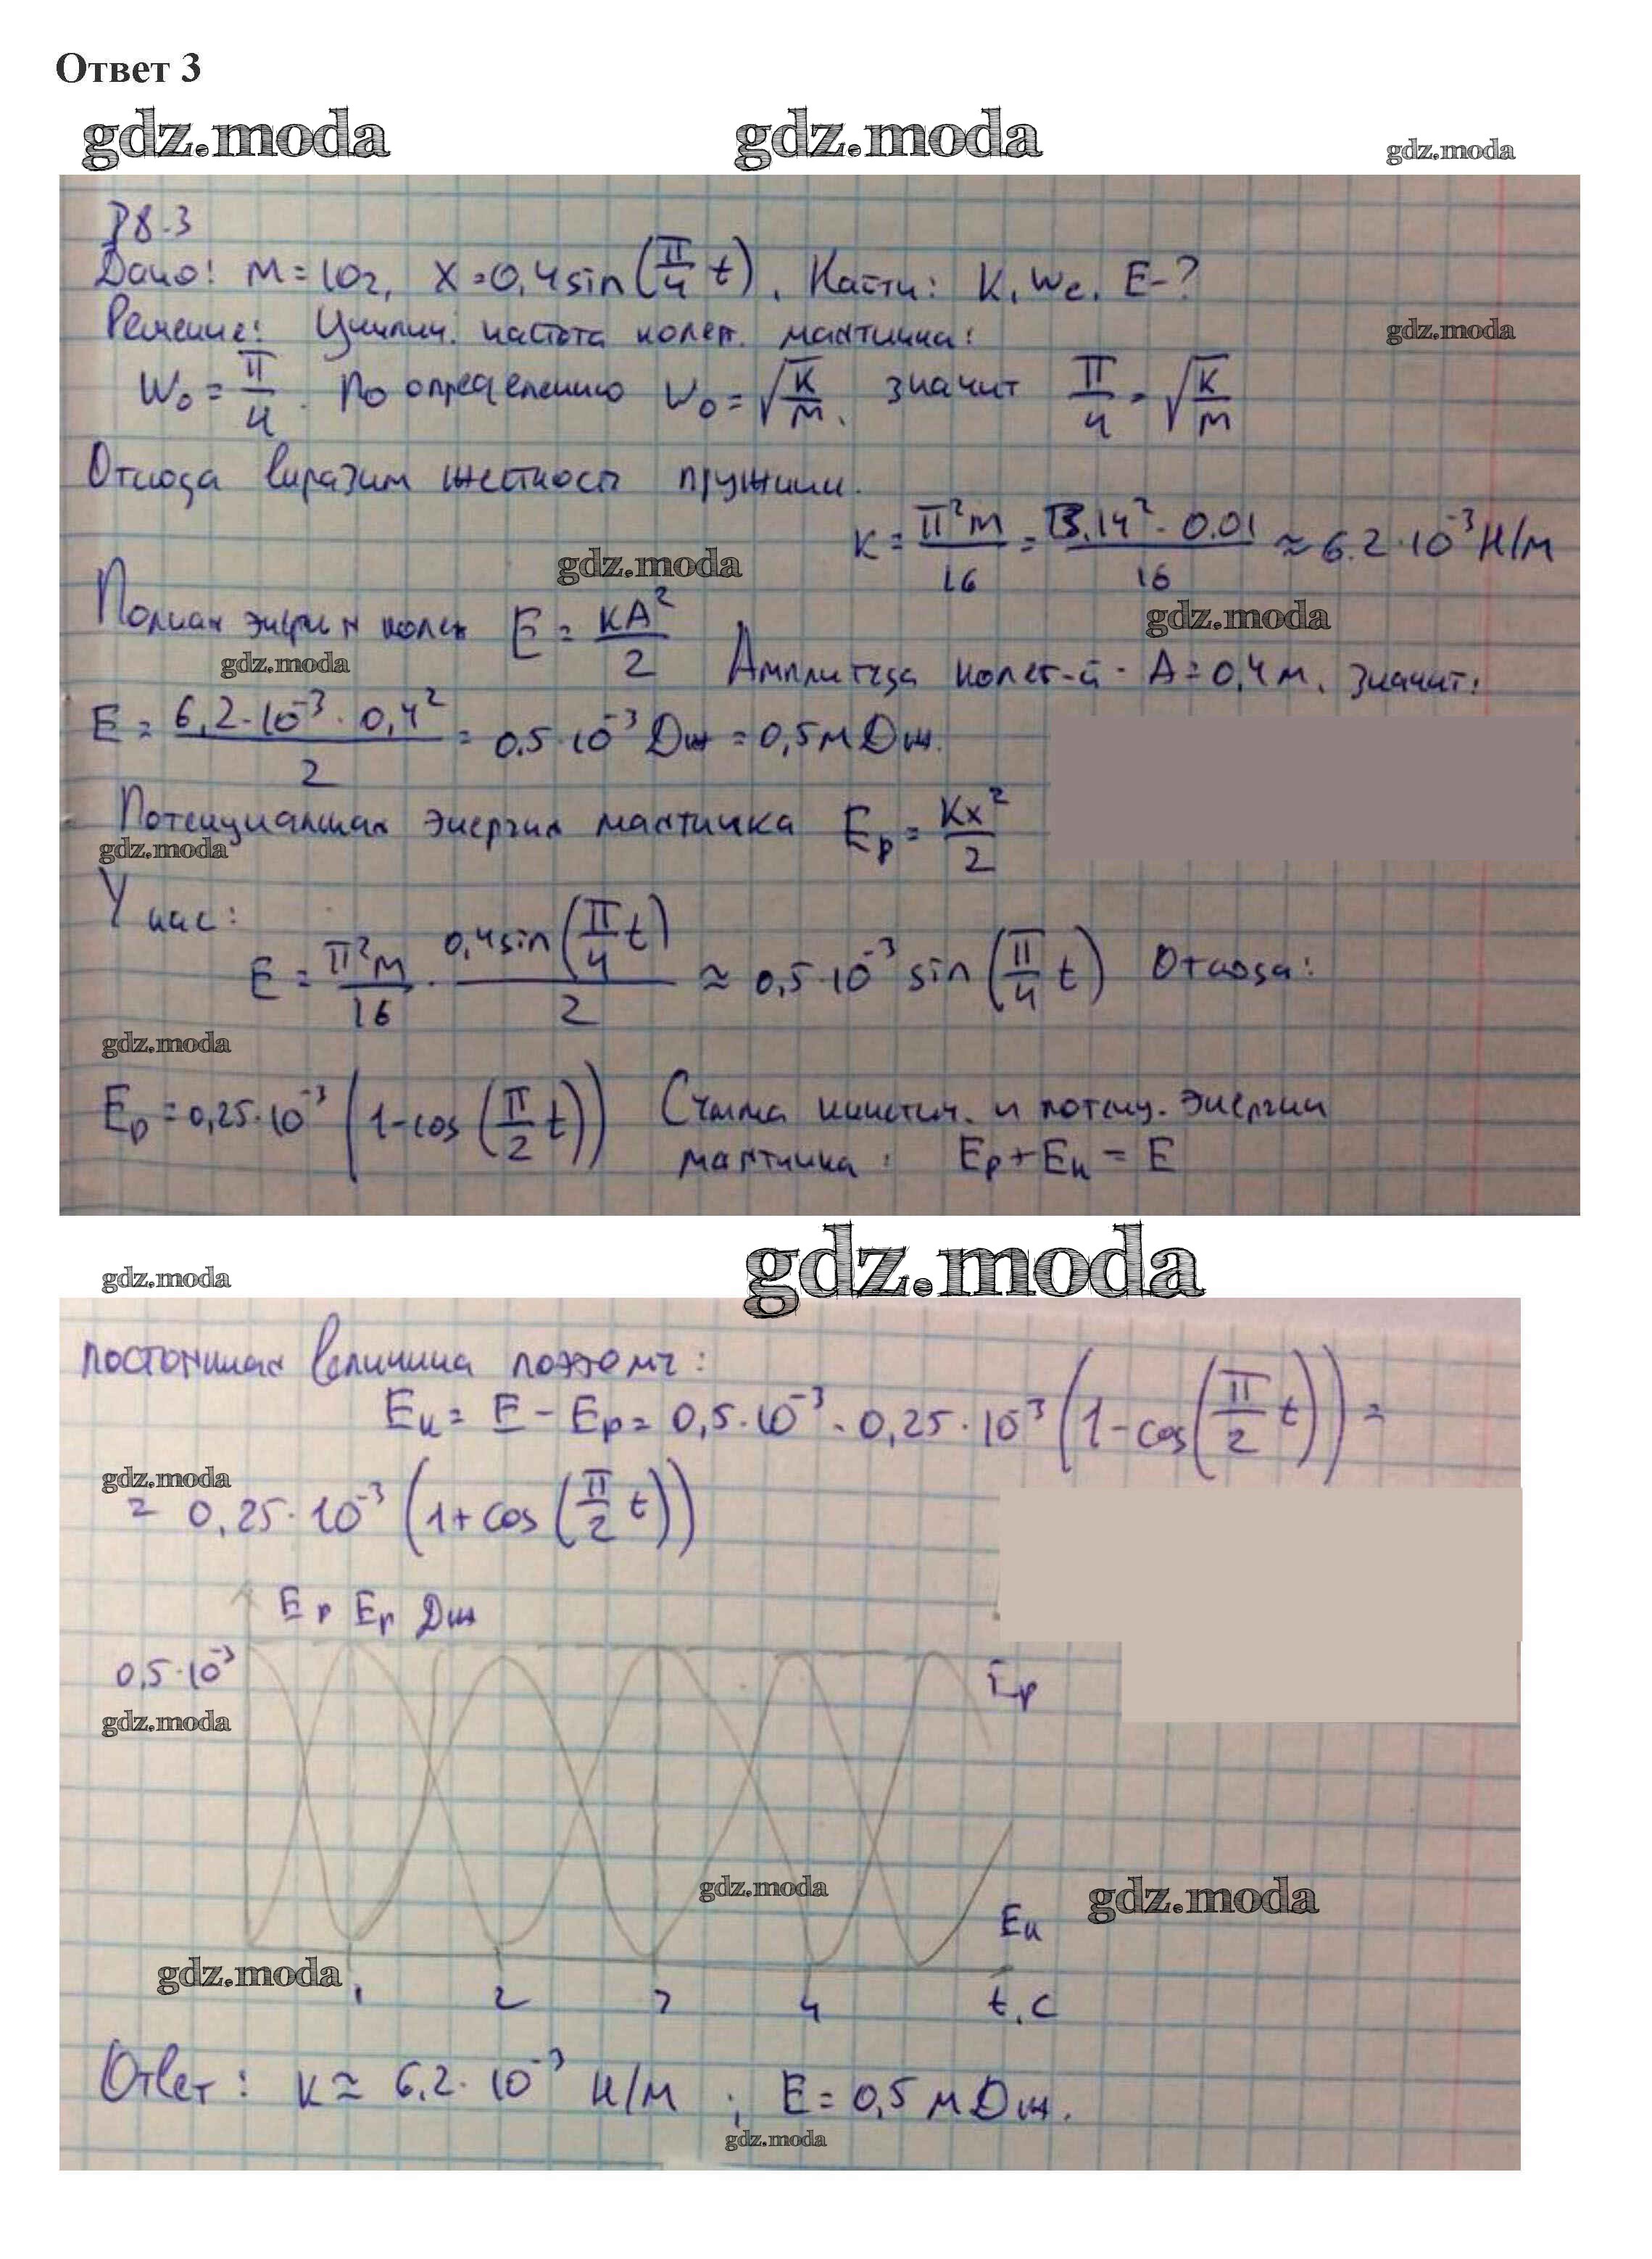 Ответ 3
gdz.moda gdz.moda gdz.moda
Р8.3
Дано: m = 10г, x = 0,4 sin(π/4 t). Найти: k, We, E-?
gdz.moda
Решение: Циклич. частота колеб. маятника:
W₀ = π/4. По определению W₀ = √(k/m), значит π/4 = √(k/m)
Отсюда выразим жесткость пружины.
k = π²m/16 = 3,14² · 0.01/16 ≈ 6.2 · 10⁻³ Н/м
gdz.moda
gdz.moda
Полная энергия колеб E = kA²/2 Амплитуда колеб-й - A = 0,4 м. Значит:
gdz.moda
E = 6,2 · 10⁻³ · 0,4²/2 = 0.5 · 10⁻³ Дж = 0,5 мДж.
Потенциальная энергия маятника Eр = kx²/2
gdz.moda
У нас:
E = π²m/16 · 0,4 sin(π/4 t)/2 ≈ 0,5 · 10⁻³ sin(π/4 t) Отсюда:
gdz.moda
Eр = 0,25 · 10⁻³ (1 - cos(π/2 t)) Сумма кинетич. и потенц. энергии
маятника: Eр + Eк = E
gdz.moda
gdz.moda
постоянная величина поэтому:
Eк = E - Eр = 0,5 · 10⁻³ - 0,25 · 10⁻³ (1 - cos(π/2 t)) =
gdz.moda
= 0,25 · 10⁻³ (1 + cos(π/2 t))
Eр Eр Дж
0,5 · 10⁻³
Eр
gdz.moda
gdz.moda
gdz.moda
Eк
gdz.moda
1 2 3 4 t, c
Ответ: k ≈ 6,2 · 10⁻³ Н/м ; E = 0,5 мДж.
gdz.moda